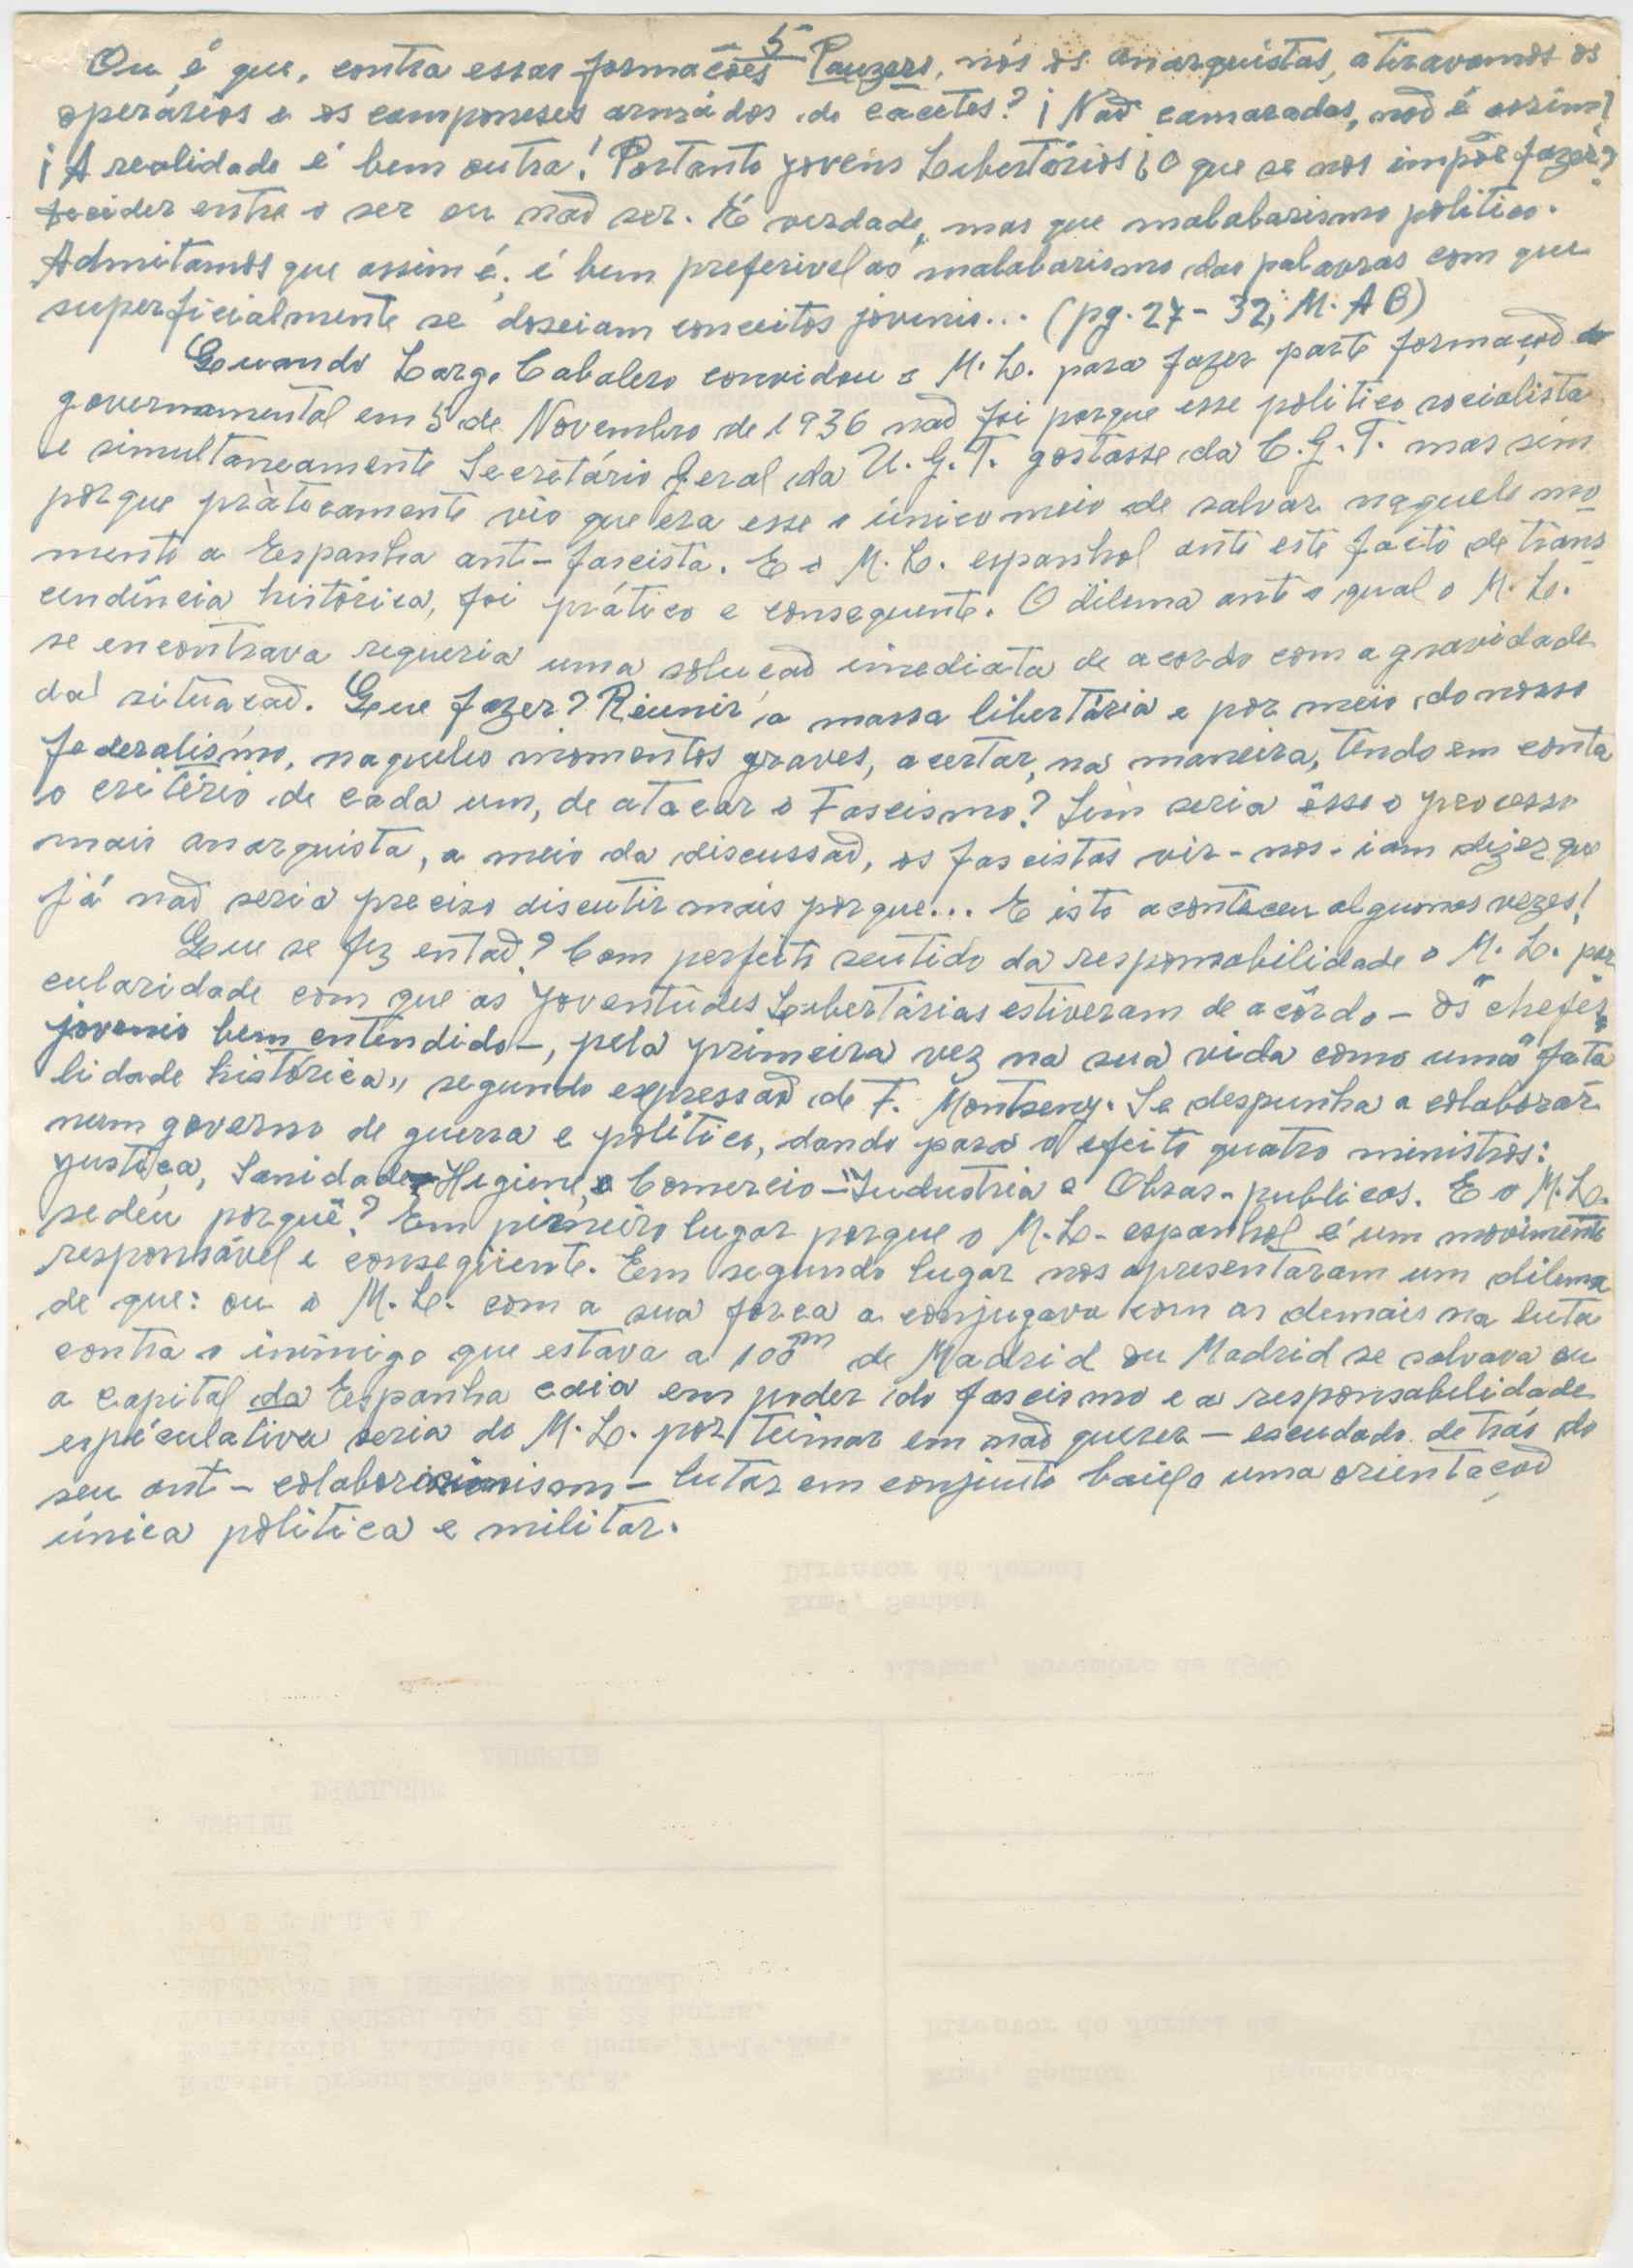 5
Ou é que, contra essas formações Panzers, nós os anarquistas, atiravamos os
operários e os camponeses armádos de cacetes? ¡ Não camaradas, não é assim!
¡ A realidade é bem outra! Portanto jovens Libertários ¿ O que se nos impõe fazer?
Decider entre o ser ou não ser. É verdade, mas que malabarismo politico.
Admitamos que assim é, é bem preferivel ao malabarismo das palavras com que
superficialmente se doseiam conceitos jovenis... (pg. 27-32; M. A B)
Quando Largo Cabalero convidou o M. L. para fazer parte formação
governamental em 5 de Novembro de 1936 não foi porque esse politico socialista
e simultaneamente Secretário Geral da U. G. T. gostasse da C. G. T. mas sim
porque pràtocamente vio que era esse o único meio de salvar naquele mo
mento a Espanha anti-fascista. E o M. L. espanhol ante este facto de trans
cendência histórica, foi prático e consequente. O dilema ante o qual o M. L.
se encontrava requeria uma solução imediata de acordo com a gravidade
da situação. Que fazer? Reunir a massa libertária e por meio do nosso
federalismo, naqueles momentos graves, acertar, na maneira, tendo em conta
o critério de cada um, de atacar o Fascismo? Sim seria êsse o processo
mais anarquista, a meio da discussão, os fascistas vir-nos-iam dizer que
já não seria preciso discutir mais porque... E isto aconteceu algumas vezes!
Que se fez então? Com perfeito sentido da responsabilidade o M. L. par
cularidade com que as Joventudes Libertárias estiveram de acôrdo - os "chefes"
jovenis bem entendido -, pela primeira vez na sua vida como uma "fata
lidade histórica" segundo expressão de F. Montseny. Se despunha a colaborar
num governo de guerra e politico, dando para o efeito quatro ministros:
justiça, Sanidade Higiene, Comercio - Industria e Obras-publicas. E o M. L.
se deu porquê? Em primeiro lugar porque o M. L. espanhol é um movimento
responsável e conseqüente. Em segundo lugar nos apresentaram um dilema
de que: ou o M. L. com a sua força a conjugava com as demais na luta
contra o inimigo que estava a 100m de Madrid ou Madrid se salvava ou
a capital da Espanha caia em poder do fascismo e a responsabilidade
espéculativa seria do M. L. por teimar em não querer - escudado detrás do
seu anti- - lutar em conjunto baixo uma orientação
única politica e militar.